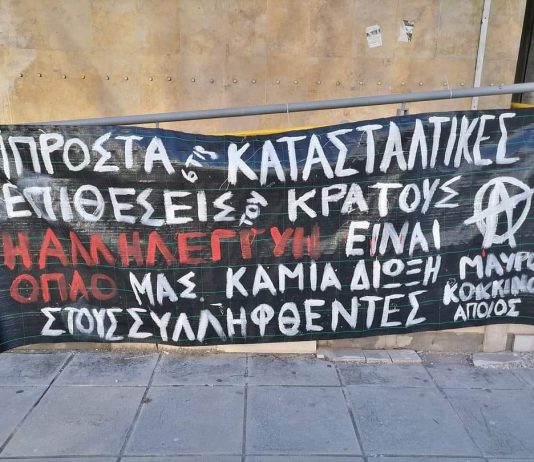 ΜΠΡΟΣΤΑ στις ΚΑΤΑΣΤΑΛΤΙΚΕΣ
ΕΠΙΘΕΣΕΙΣ ΤΟΥ ΚΡΑΤΟΥΣ
Η ΑΛΛΗΛΕΓΓΥΗ ΕΙΝΑΙ
ΟΠΛΟ ΜΑΣ. ΚΑΜΙΑ ΔΙΩΞΗ
ΣΤΟΥΣ ΣΥΛΛΗΦΘΕΝΤΕΣ
Α
ΜΑΥΡΟ
ΚΟΚΚΙΝΟ
ΑΠΘ/ΟΣ